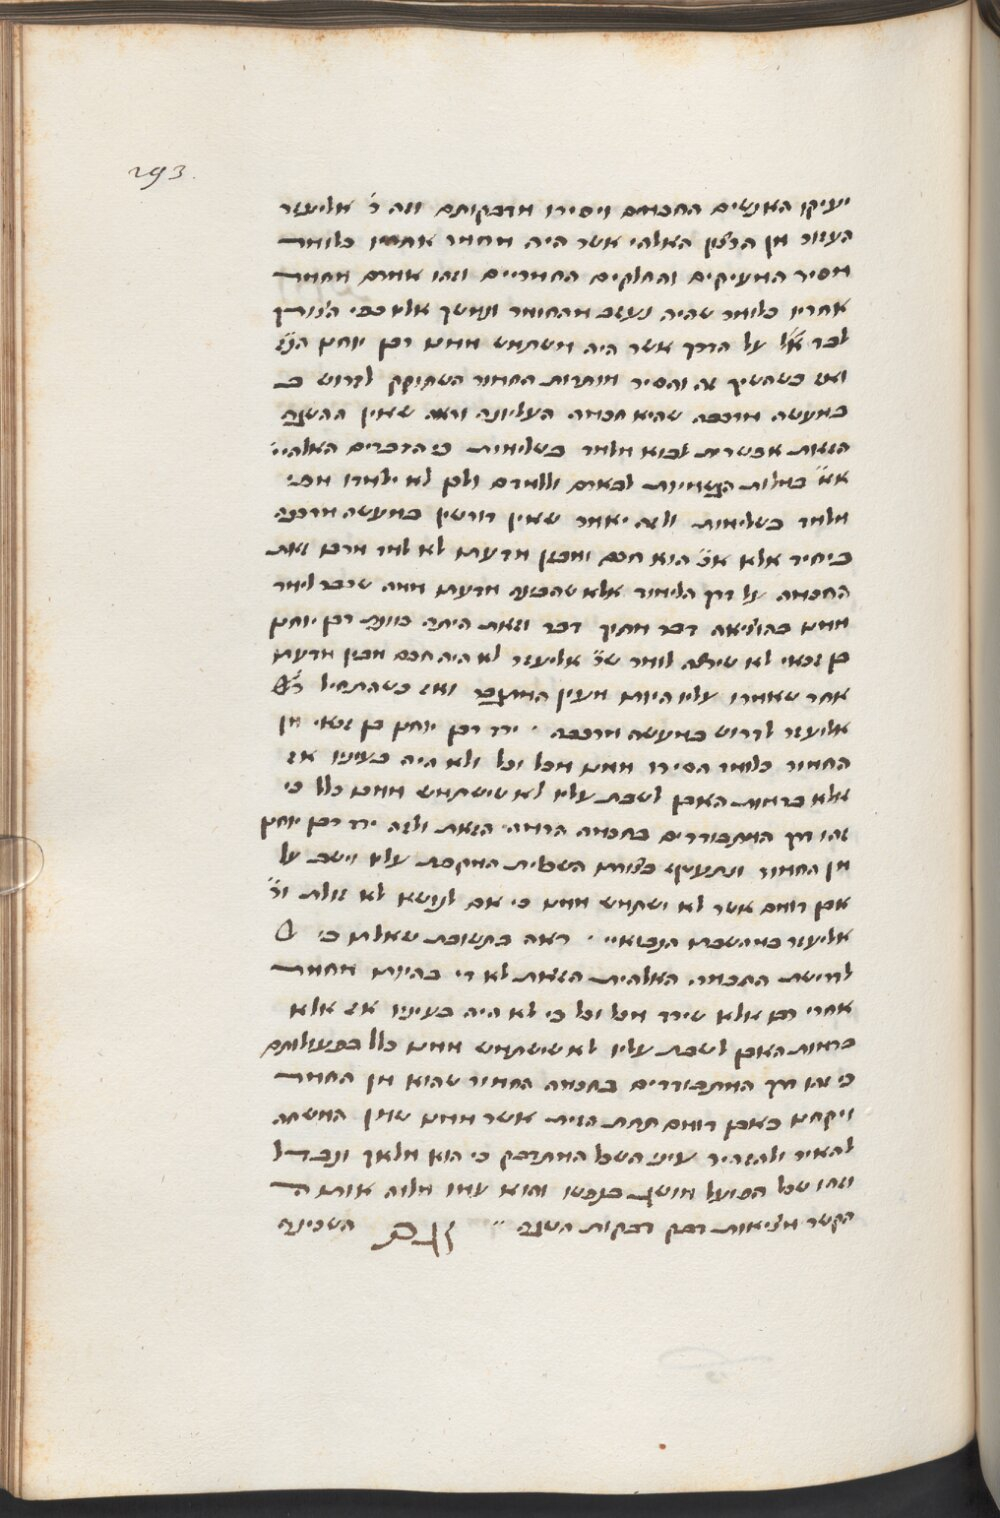 293.
יעיקו האנשים החכמים ויסירו מדבקותם וזה ר׳ אליעזר
העזור מן הרצון האלהי אשר היה מחמר אחריו כלומר
מסיר המעיקים והחלקים החמריים וזהו אמרם מחמר
אחריו כלומר שהיה נעזב מהחומר ונמשך אליו כפי הצורך
לבד על הדרך אשר היה משתמש ממנו רבן יוחנן הנז׳
ואז כשהשיג זה והסיר מותרות החמור השתוקק לדרוש
במעשה מרכבה שהיא חכמה העליונה וראה שאין ההשגה
הזאת אפשרית לבוא מלמד בשלימות כי הדברים האלהיי׳
במלות הגשמיות לבארם וללמדם ולכן לא ילמדו מפי
מלמד בשלימות ולזה יאמר שאין דורשין במעשה מרכבה
ביחיד אלא א״כ הוא חכם ומבין מדעתו לא למד מרבו זאת
החכמה על דרך הלימוד אלא שהבינה מדעתו ממה שכבר לימד
ממנו בהוציאה דבר מתוך דבר וזאת היתה כוונת רבן יוחנן
בן זכאי לא שירצה לומר שר׳ אליעזר לא היה חכם מבין מדעתו
אחר שאמרו עליו היותו מעין המתגבר ואז כשהתחיל ר׳
אליעזר לדרוש במעשה מרכבה ׳ ירד רבן יוחנן בן זכאי מן
החמור כלומר הסירו ממנו מכל וכל ולא היה בעיניו אז
אלא כדמות האבן לשבת עליו לא שישתמש ממנו כלל כי
זהו דרך המתבודדים בחכמה הרמה הזאת ולזה ירד רבן יוחנן
מן החמור ונתעטף בצורתו השכלית המקפת עליו וישב על
אבן דומם אשר לא ישתמש ממנו כי אם לנושא לא זולת ור׳
אליעזר במחשבתו הנבואיי׳ ׳ ראה בתשובת שאלתו כי
לדרישת החכמה האלהית הזאת לא די בהיותו מחמר
אחרי רבו אלא שירד מכל וכל כי לא היה בעיניו אז אלא
כדמות האבן לשבת עליו לא שישתמש ממנו כלל בפעולותם
כי זהו דרך המתבודדים בחכמה החמור שהוא מן החמר
ויקחנו כאבן דומם תחת הזית אשר ממנו שמן המשחה
להאיר ולהזהיר עיני השכל המתדבק כי הוא מלאך ונבדל
וזהו שכל הפועל מושג בנפשו והוא עמו מלוה אותה
הקשר מציאות דבק דבקות השגה ״ השכינה